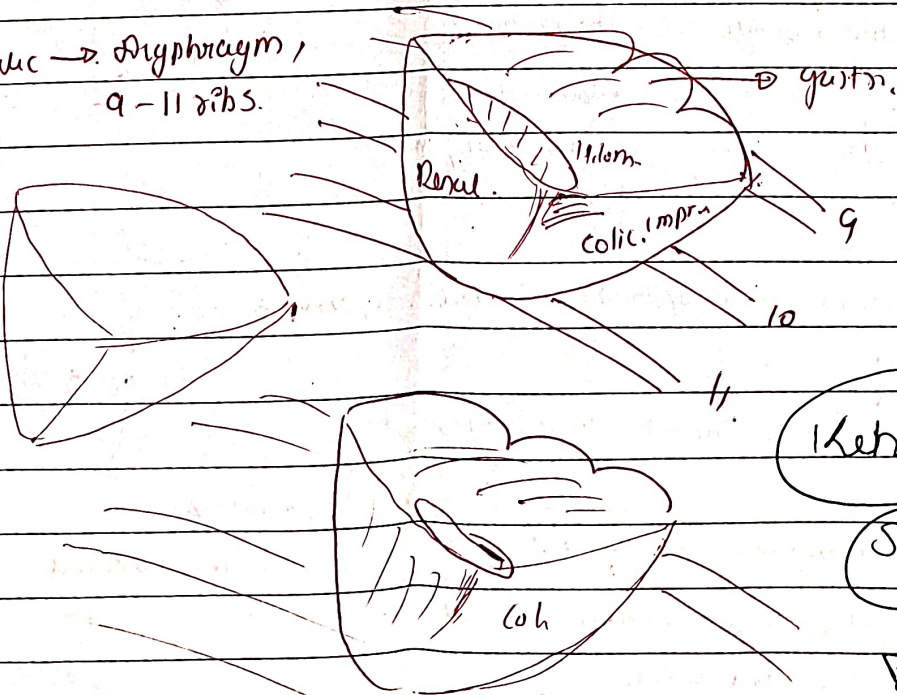 → Diyphragm,
9-11 ribs.
gastri.
Hilum.
Renal.
Colic. impr
9
10
11.
Col